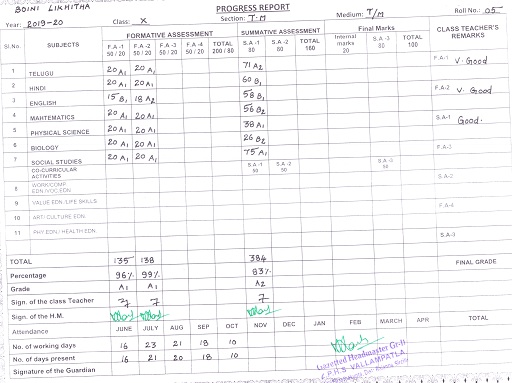 BOINI LIKHITHA PROGRESS REPORT
Year: 2019-20 Class: X Section: T-M Medium: T/M Roll No.: 05
Sl.No. SUBJECTS FORMATIVE ASSESSMENT SUMMATIVE ASSESSMENT Final Marks CLASS TEACHER'S REMARKS
F.A -1 50 / 20 F.A -2 50 / 20 F.A -3 50 / 20 F.A -4 50 / 20 TOTAL 200 / 80 S.A -1 80 S.A -2 80 TOTAL 160 Internal marks 20 S.A -3 80 TOTAL 100
1 TELUGU 20 A1 20 A1 71 A2 F.A-1 V. Good
2 HINDI 20 A1 20 A1 60 B1 F.A-2 V. Good
3 ENGLISH 15 B1 18 A2 58 B1
4 MAHTEMATICS 20 A1 20 A1 56 B2 S.A-1 Good.
5 PHYSICAL SCIENCE 20 A1 20 A1 38 A1
6 BIOLOGY 20 A1 20 A1 26 B2 F.A-3
7 SOCIAL STUDIES 20 A1 20 A1 75 A1
CO-CURRICULAR ACTIVITIES S.A -1 50 S.A -2 50 S.A -3 50
8 WORK/COMP. EDN/VOC.EDN S.A-2
9 VALUE EDN./LIFE SKILLS
10 ART/ CULTURE EDN. F.A-4
11 PHY.EDN./ HEALTH EDN.
S.A-3
TOTAL 135 138 384 FINAL GRADE
Percentage 96% 99% 83%
Grade A1 A1 A2
Sign. of the class Teacher
Sign. of the H.M.
Attendance JUNE JULY AUG SEP OCT NOV DEC JAN FEB MARCH APR TOTAL
No. of working days 16 23 21 18 10
No. of days present 16 21 20 18 10
Signature of the Guardian
Gazetted Headmaster Gr-II
Z.P.H.S. VALLAMPATLA